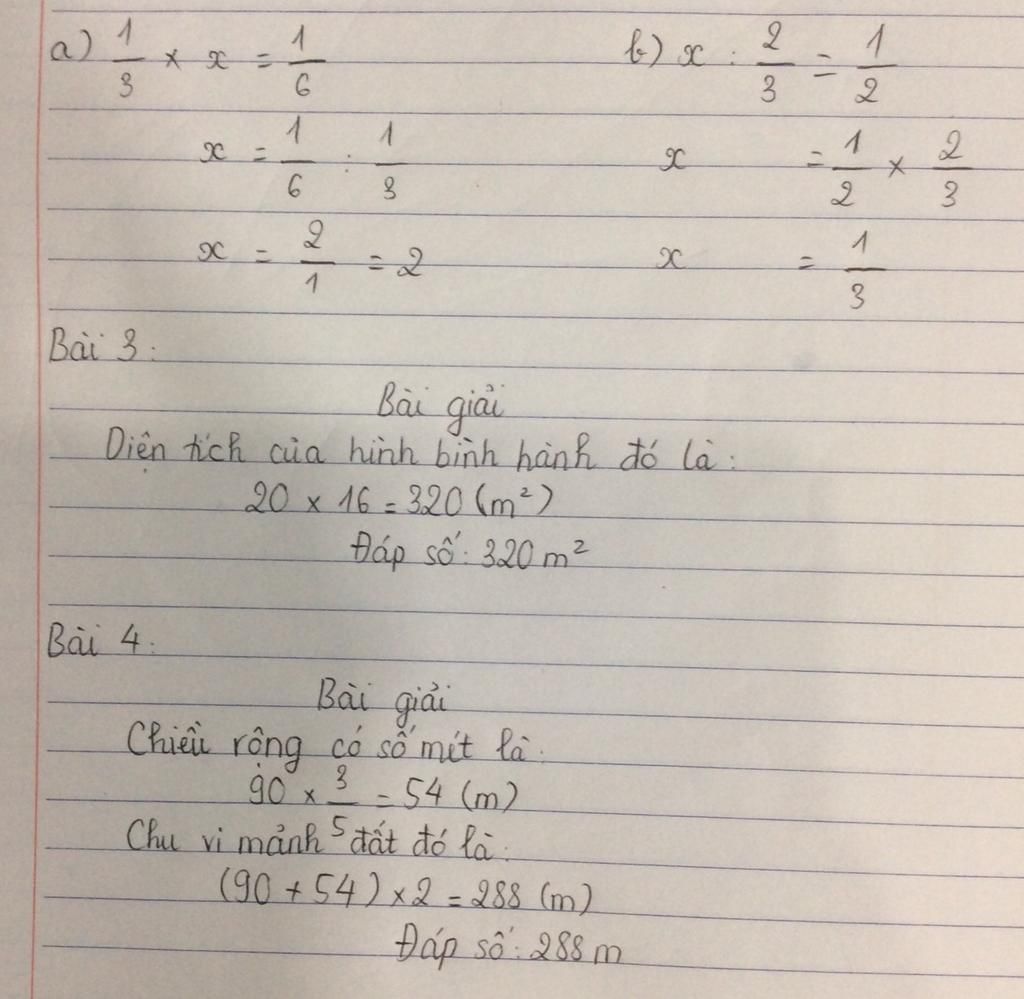 a) 1/3 × x = 1/6 b) x : 2/3 = 1/2
x = 1/6 : 1/3 x = 1/2 × 2/3
x = 2/1 = 2 x = 1/3
Bài 3:
Bài giải
Diện tích của hình bình hành đó là:
20 × 16 = 320 (m²)
Đáp số: 320 m²
Bài 4:
Bài giải
Chiều rộng có số mít là:
90 × 3/5 = 54 (m)
Chu vi mảnh đất đó là:
(90 + 54) × 2 = 288 (m)
Đáp số: 288 m